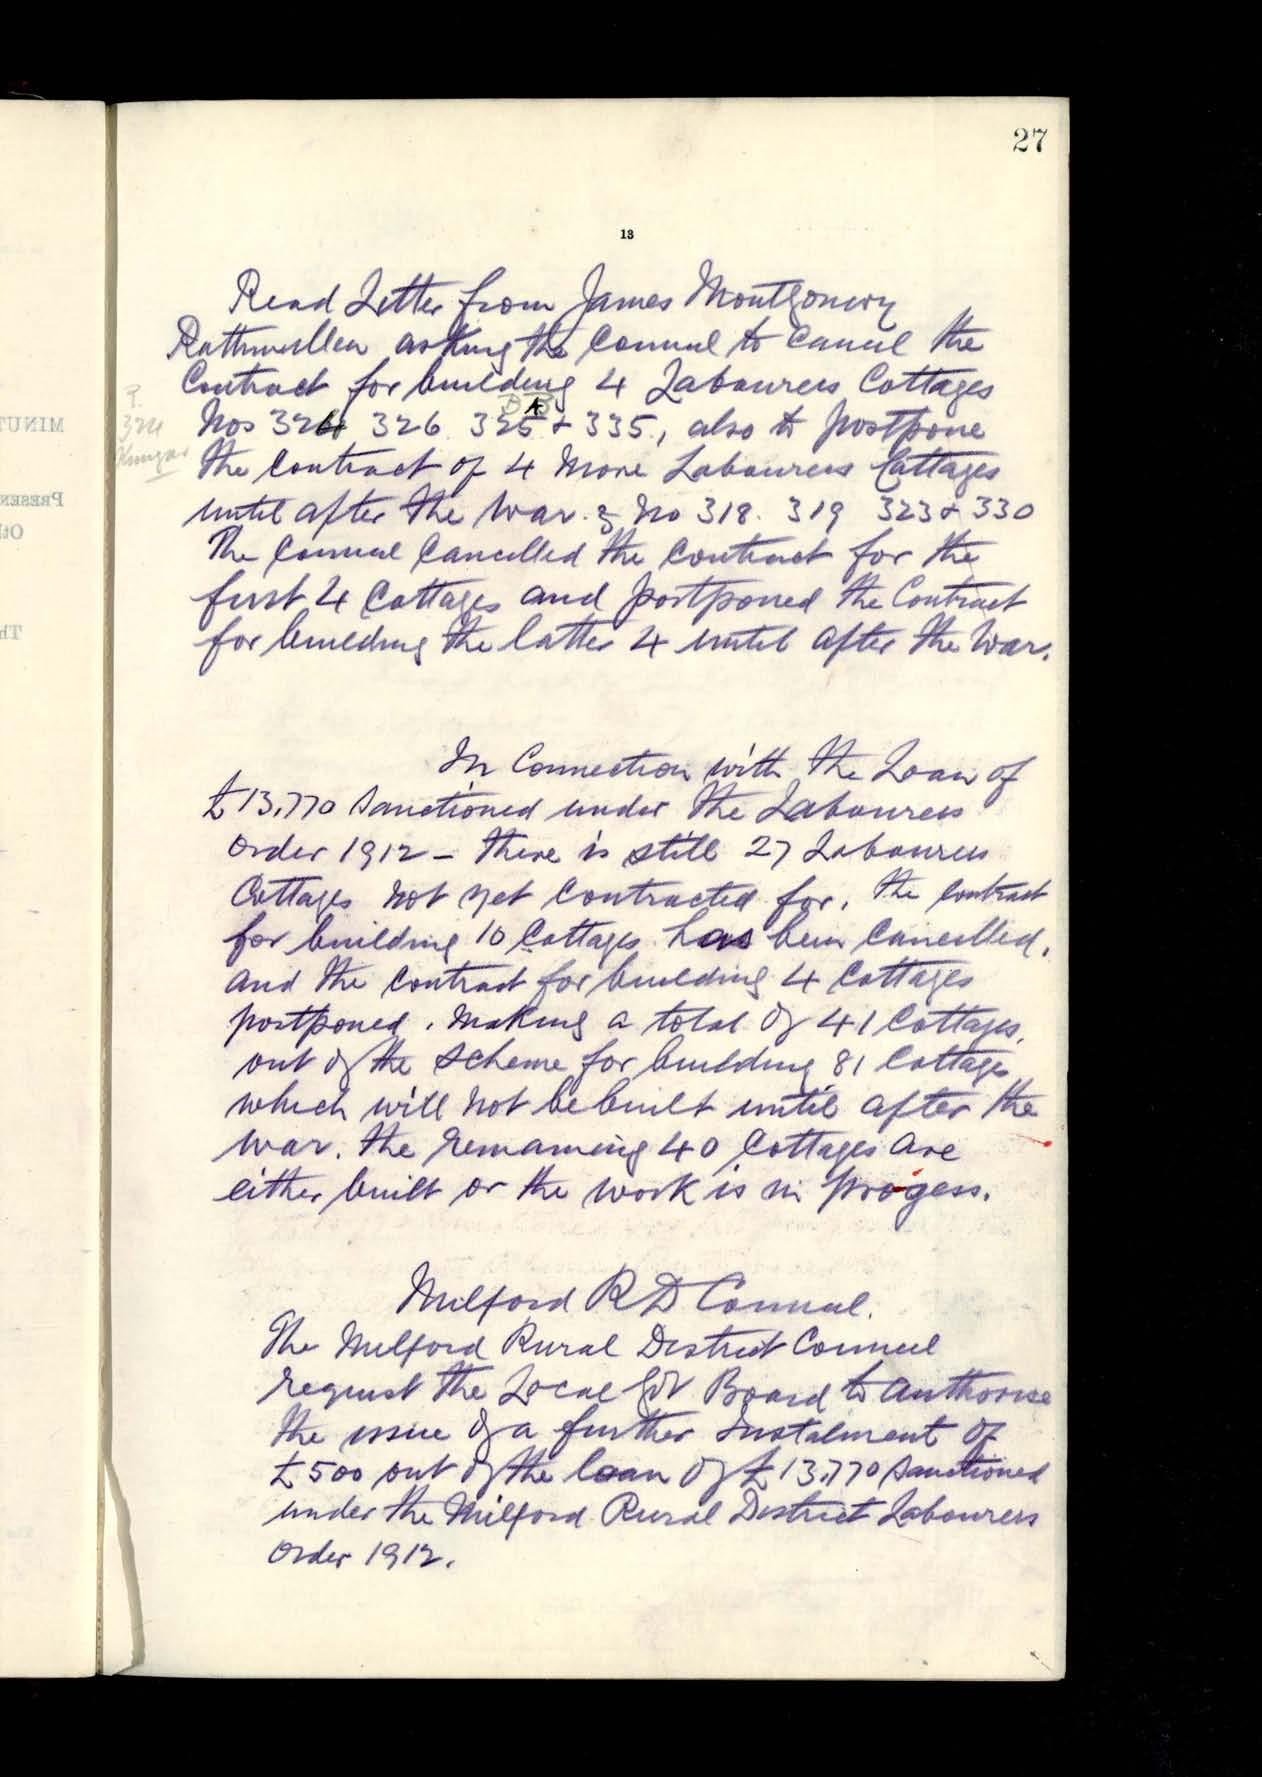 27
13
Read Letter from James Montgomery
Rathmullen asking the Council to Cancel the
Contract for building 4 Labourers Cottages
Nos 326 325 & 335, also to postpone
the contract of 4 more Labourers Cottages
until after the War. No 318. 319 323 & 330
The Council Cancelled the contract for the
first 4 Cottages and postponed the Contract
for building the latter 4 until after the War.
In Connection with the Loan of
£13,770 Sanctioned under the Labourers
Order 1912 - there is still 27 Labourers
Cottages not yet contracted for. the contract
for building 10 Cottages has been Cancelled.
and the contract for building 4 Cottages
postponed. making a total of 41 Cottages.
out of the scheme for building 81 Cottages
which will not be built until after the
War. the remaining 40 Cottages are
either built or the work is in progess.
Milford R D Council.
The Milford Rural District Council
request the Local Gov Board to authorise
the issue of a further Instalment of
£500 out of the loan of £13,770 Sanctioned
under the Milford Rural District Labourers
Order 1912.
MINUT
PRESEN
Th